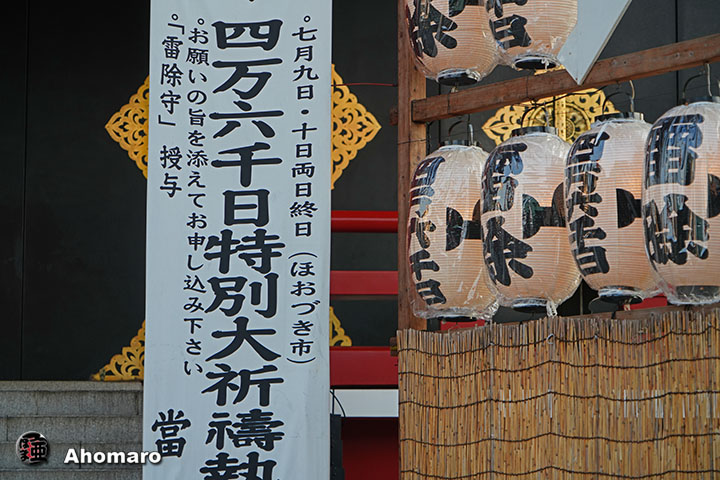 。七月九日・十日両日終日(ほおづき市)
四万六千日特別大祈禱執
。お願いの旨を添えてお申し込み下さい
。「雷除守」授与
當
雷除
Ahomaro